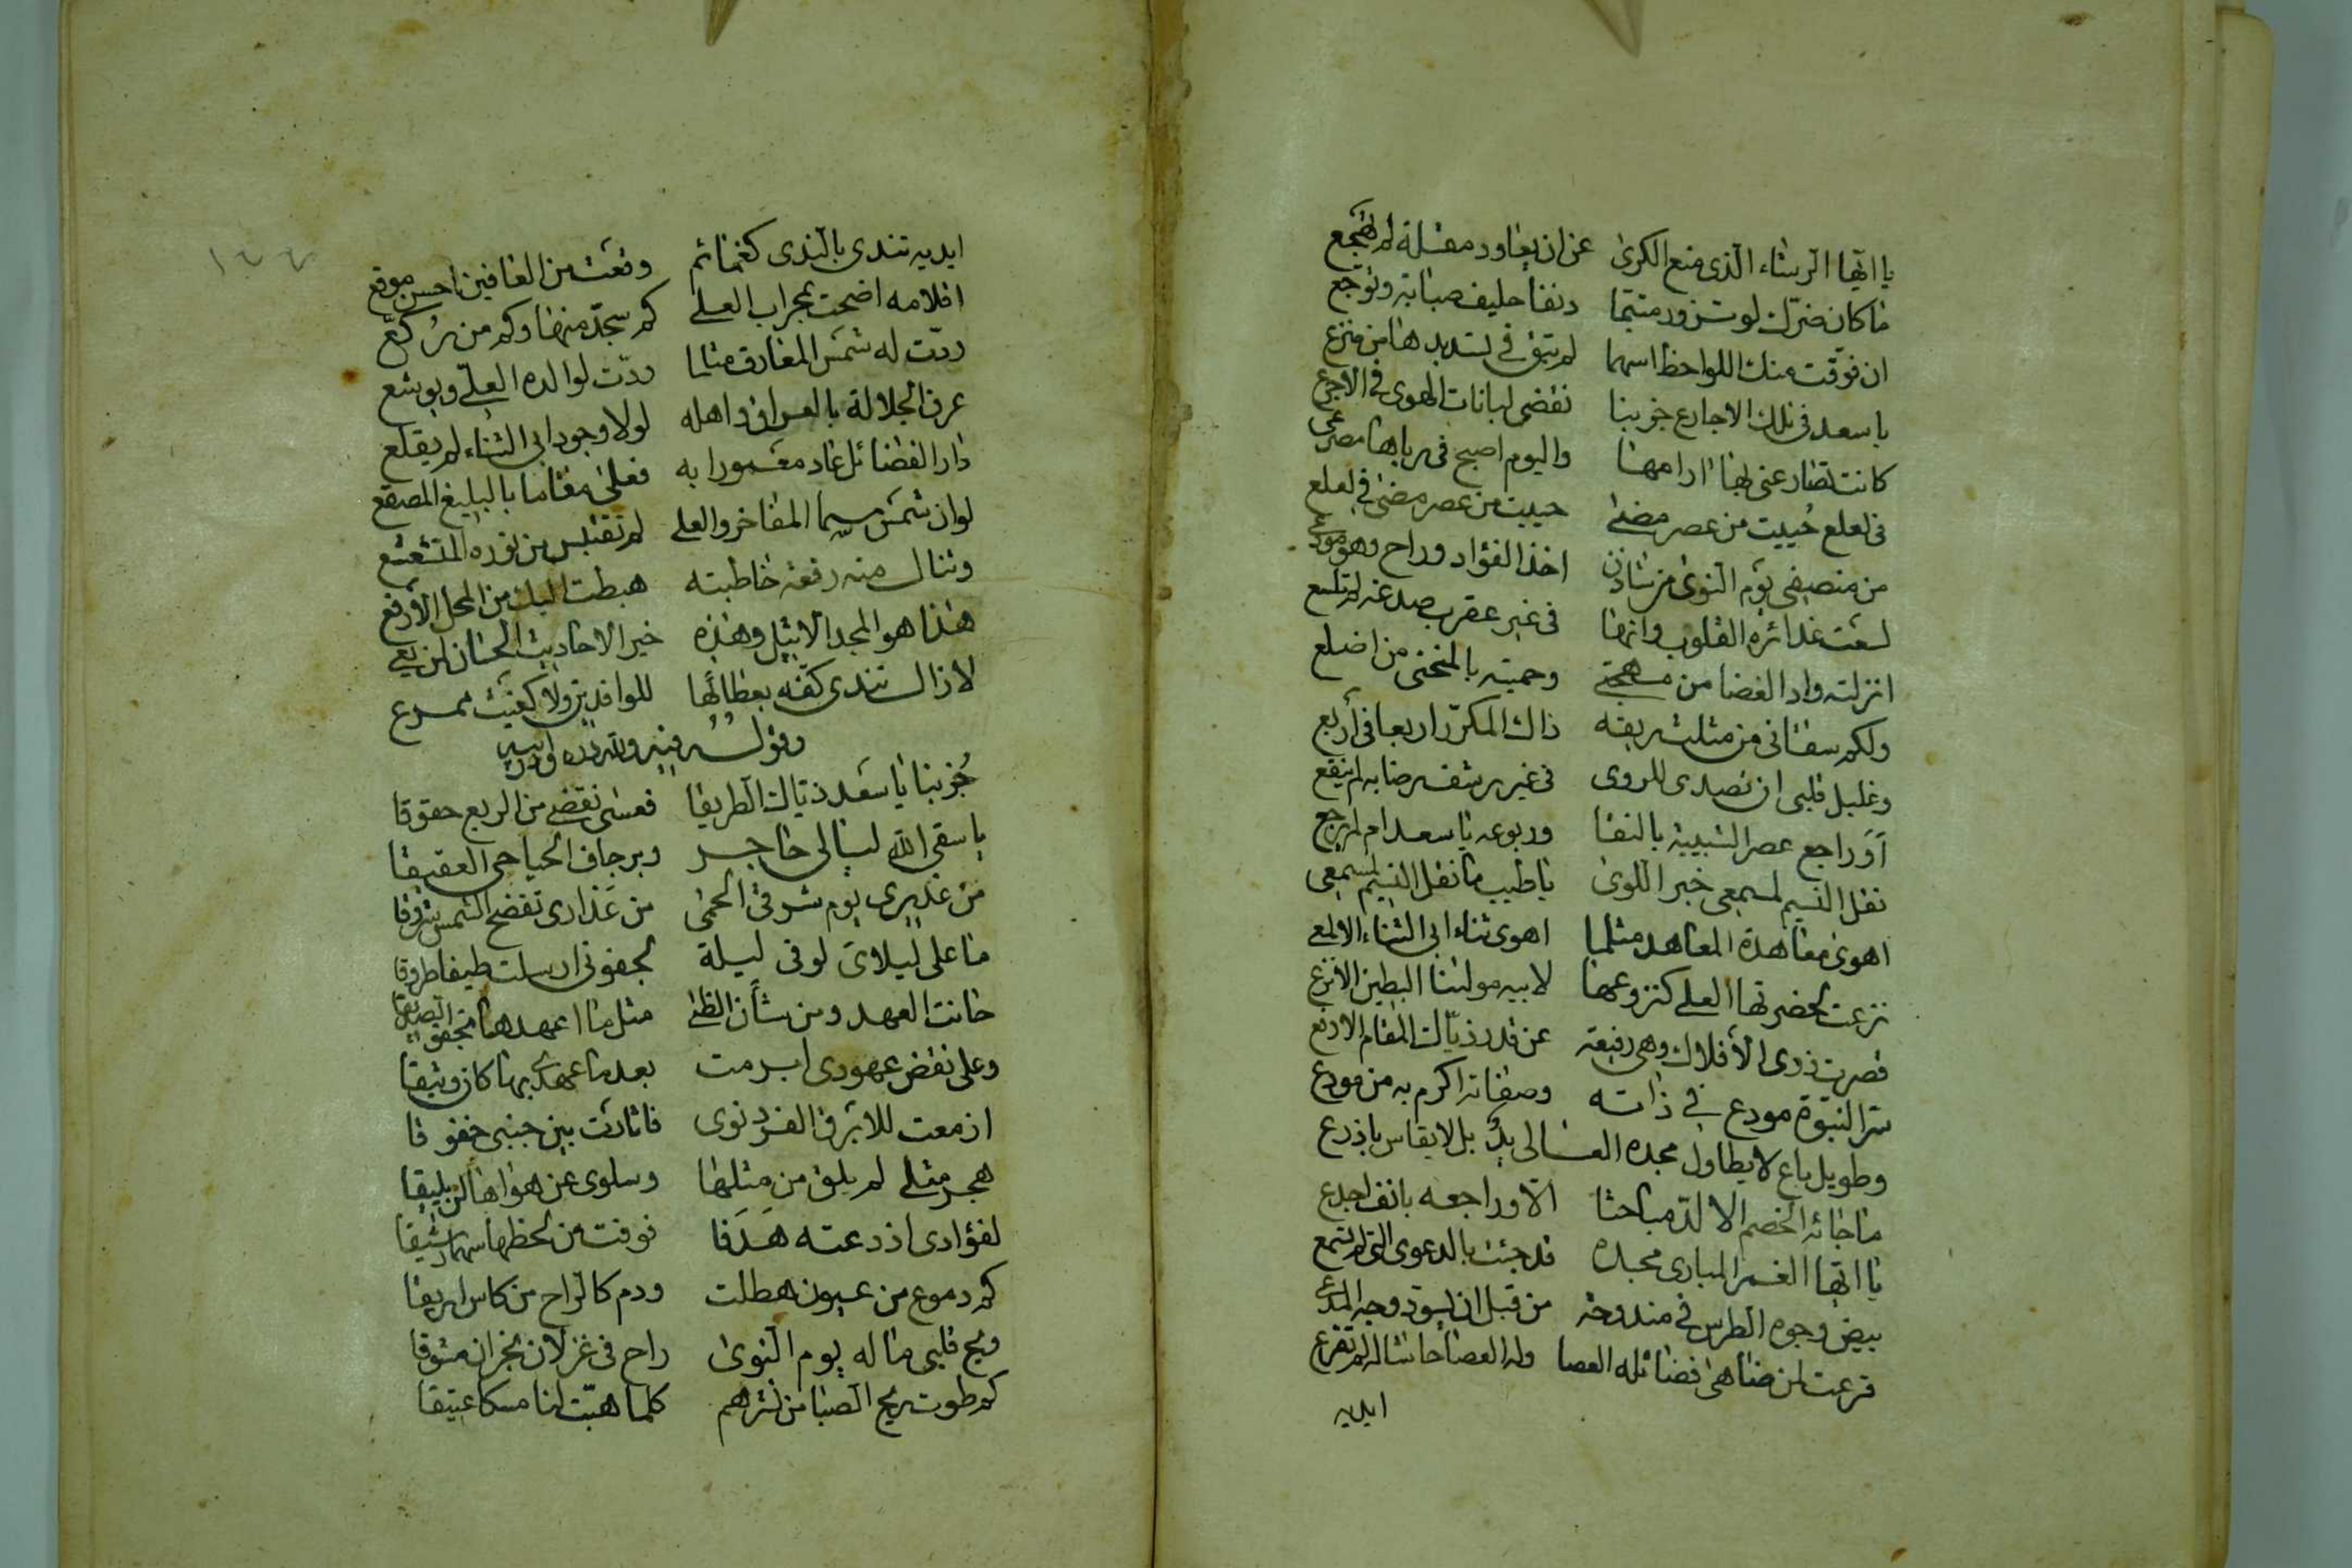 يا ايّها الرشاء الذى منع الكرى عن ان يعاود مقلة لم تهجع
ما كان ضرّك لو تزور متيّما دنفا حليف صبابة وتوجّع
ان فوّقت منك اللواحظ اسهما لم يبق فى تسديدها من منزع
يا سعد فى تلك الاجارع جز بنا نقضى لبانات الهوى فى الاجرع
كانت تصارعنى بها ارامها واليوم اصبح فى رباها مصرعى
فى لعلع حُييت من عصر مضىٰ حييت من عصر مضىٰ فى لعلع
من منصفى يوم النوىٰ من شادن اخذ الفؤاد وراح وهو مودعى
لسعت غدائره القلوب وانها فى غير عقرب صدغه لم تلسع
انزلته واد الغضا من مهجتى وحميته بالمنحنى من اضلع
ولكم سقانى من مثلث ريقه ذاك المكرّر اربعا فى أربع
وغليل قلبى ان تصدى للروى فى غير رشف رضابه لم ينقع
أوَ راجع عصر الشبيبة بالنقا وربوعه يا سعد ام لم يرجع
نقل النسيم لمسمعى خبر اللوىٰ يا طيب ما نقل النسيم لمسمعى
اهوىٰ معاهدة المعاهد مثلما اهوى ثناء ابى الثناء الالمعى
نزعت لحضرتها العلى كنزوعها لابيه مولٰنا البطين الانزع
قصرت ذرى الأفلاك وهى رفيعة عن قدر ذيّاك المقام الارفع
سرّ النبوّة مودع فى ذاته وصفاته اكرم به من مودع
وطويل باع لا يطاول مجده العالى يدٌ بل لا يقاس باذرع
ما جائه الخصم الالدّ مباحثا الّا وراجعه بانف اجدع
يا ايّها الغمر المبارى مجده قد جئت بالدعوى التى لم تسمع
بيض وجوه الطرس فى مندوحة من قبل ان يسوّد وجه المدعى
قرعت لمن ضاهىٰ فضائله العصا وله العصا حاشا له لم تقرع
ايديه
ايديه تندى بالنّدى كغمائم وقعت من العافين احسن موقع
اقلامه اضحت بمحراب العلى كم سجّد منها وكم من رُكّع
ردّت له شمس المعارف مثلما ردّت لوالده العلىّ ويوشع
عرف الجلالة بالعراق واهله لولا وجود ابى الثناء لم يقلع
دار الفضائل عاد معمورا به فعلىٰ مقاما بالبليغ المصقع
لو ان شمس سما المفاخر والعلى لم تقتبس من نوره المتشعشع
وتنال منه رفعة خاطبته هبطت اليك من المحل الأرفع
هٰذا هو المجد الاثيل وهٰذه خير الاحاديث الحسان لمن يعى
لا زال تندى كفّه بعطائها للوافدين ولا كغيث ممرع
وقولــه فيه ولله درّه وابيه
جُز بنا يا سعد ذيّاك الطريقا فعسٰى نقضى من الربع حقوقا
يا سقى الله ليالى حاجــر وبرجاف الحيا حى العقيقا
من عذيرى يوم شرقىّ الحمىٰ من عَذارى تفضح الشمس شروقا
ما على ليلاى لو فى ليلة لجفونى ارسلت طيفا طروقا
خانت العهد ومن شأن الظبى مثل ما اعهدها تجفو الصديقا
وعلى نقض عهودى ابرمت بعد ما عهدى بها كان وثيقا
ازمعت للابرق الفرد نوى فاثارت بين جنبى خفوقا
هجر مثلى لم يلق من مثلها وسلوى عن هواها لن يليقا
لفؤادى اذ دعته هَدَفا فوقت من لحظها سهما رشيقا
كم دموع من عيون هطلت ودم كالراح من كاس اريقا
ويح قلبى ما له يوم النوىٰ راح فى غزلان نجران مشوقا
كم طوت ريح الصبا من نشرهم كلما هبّت لنا مسكا عبيقا